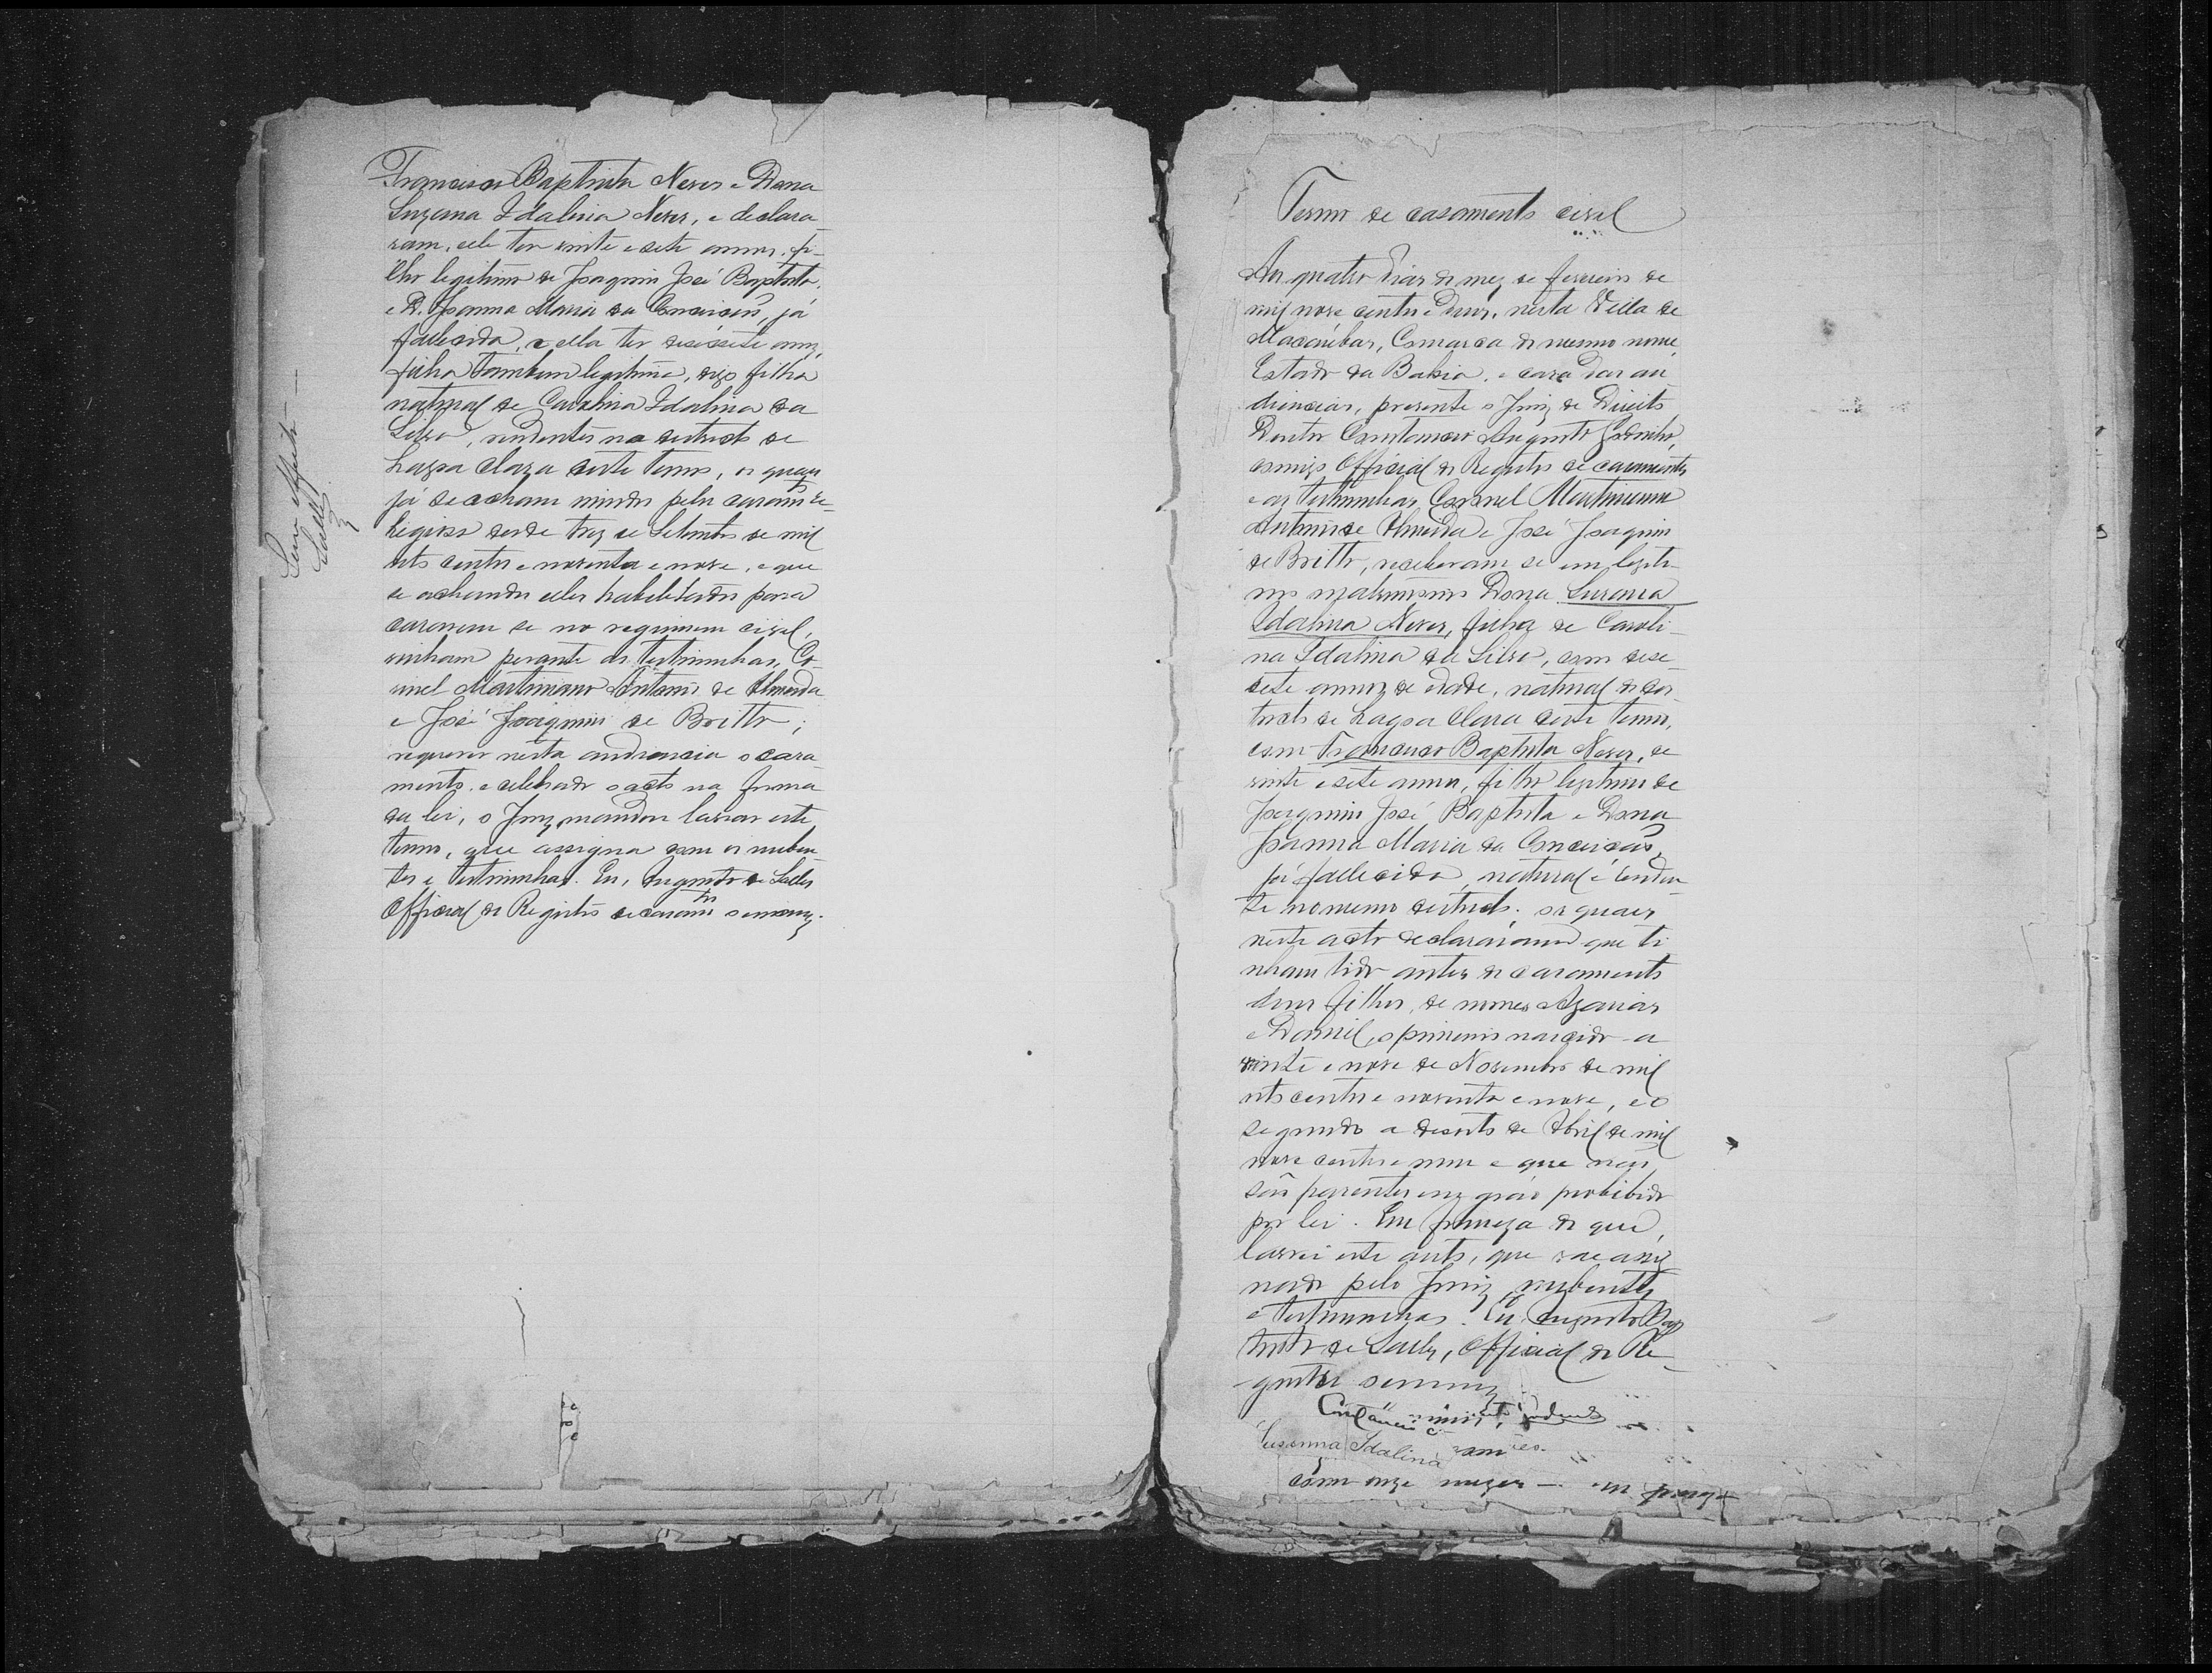 Francisco Baptista Neves e Dona
Suzana Idalina Neves, e declara-
ram, elle ter vinte e sete annos, fi-
lho legitimo de Joaquim José Baptista,
e D. Joanna Maria da Conceiçaõ, já
fallecida, e ella ter desessete annos,
filha tambem legitima, digo filha
natural de Carolina Idalina da
Silva, residentes no districto de
Lagoa Clara deste termo, os quaes
já se acham unidos pelo casamto re-
ligioso desde trez de Setembro de mil
oito centos e noventa e nove, e que
se achando elles habelitados para
casarem se no regimem civil,
vinham perante as testimunhas, Co-
ronel Martiniano Antonio de Almeida
e José Joaquim de Britto;
requerer nesta audiencia o casa-
mento, e celebrado o acto na forma
da lei, o Juiz mandou lavrar este
termo, que assigna com os nuben-
tes e testimunhas. Eu, Augusto de Salles
Official do Registro de casamto o escrevy.
Sem effeito
Salles
Termo de casamento civil
Aos quatro dias do mez de fevereiro de
mil nove centos e dous, nesta Villa de
Macaúbas, Comarca do mesmo nome,
Estado da Bahia, e casa das au-
diencias, presente o Juiz de Direito
Doutor Constancio Augusto Godinho,
comigo Official do Registro de casamentos
e as testimunhas Coronel Martiniano
Antonio de Almeida e José Joaquim
de Britto, receberam se em legiti-
mo matrimonio Dona Susana
Idalina Neves, filha de Caroli-
na Idalina da Silva, com dese-
sete annos de idade, natural do dis-
tricto de Lagoa Clara deste termo,
com Francisco Baptista Neves, de
vinte e sete annos, filho legitimo de
Joaquim José Baptista e Dona
Joanna Maria da Conceiçaõ,
já fallecida, natural e residen-
te no mesmo districto; os quaes
neste acto declararam que ti-
nham tido antes do casamento
dous filhos, de nomes Azarias
e Daniel, o primeiro nascido a
vinte e nove de Novembro de mil
oito centos e noventa e nove, e o
segundo a desoito de Abril de mil
nove centos e um e que naõ
saõ parentes em gráo prohibido
por lei. Em firmeza do que,
lavrei este auto, que vae assig-
nado pelo Juiz, nubentes
e testimunhas. Eu Augusto Bap-
tista de Salles, Official do Re-
gistro o escrevy
Constancio
Susanna Idalina